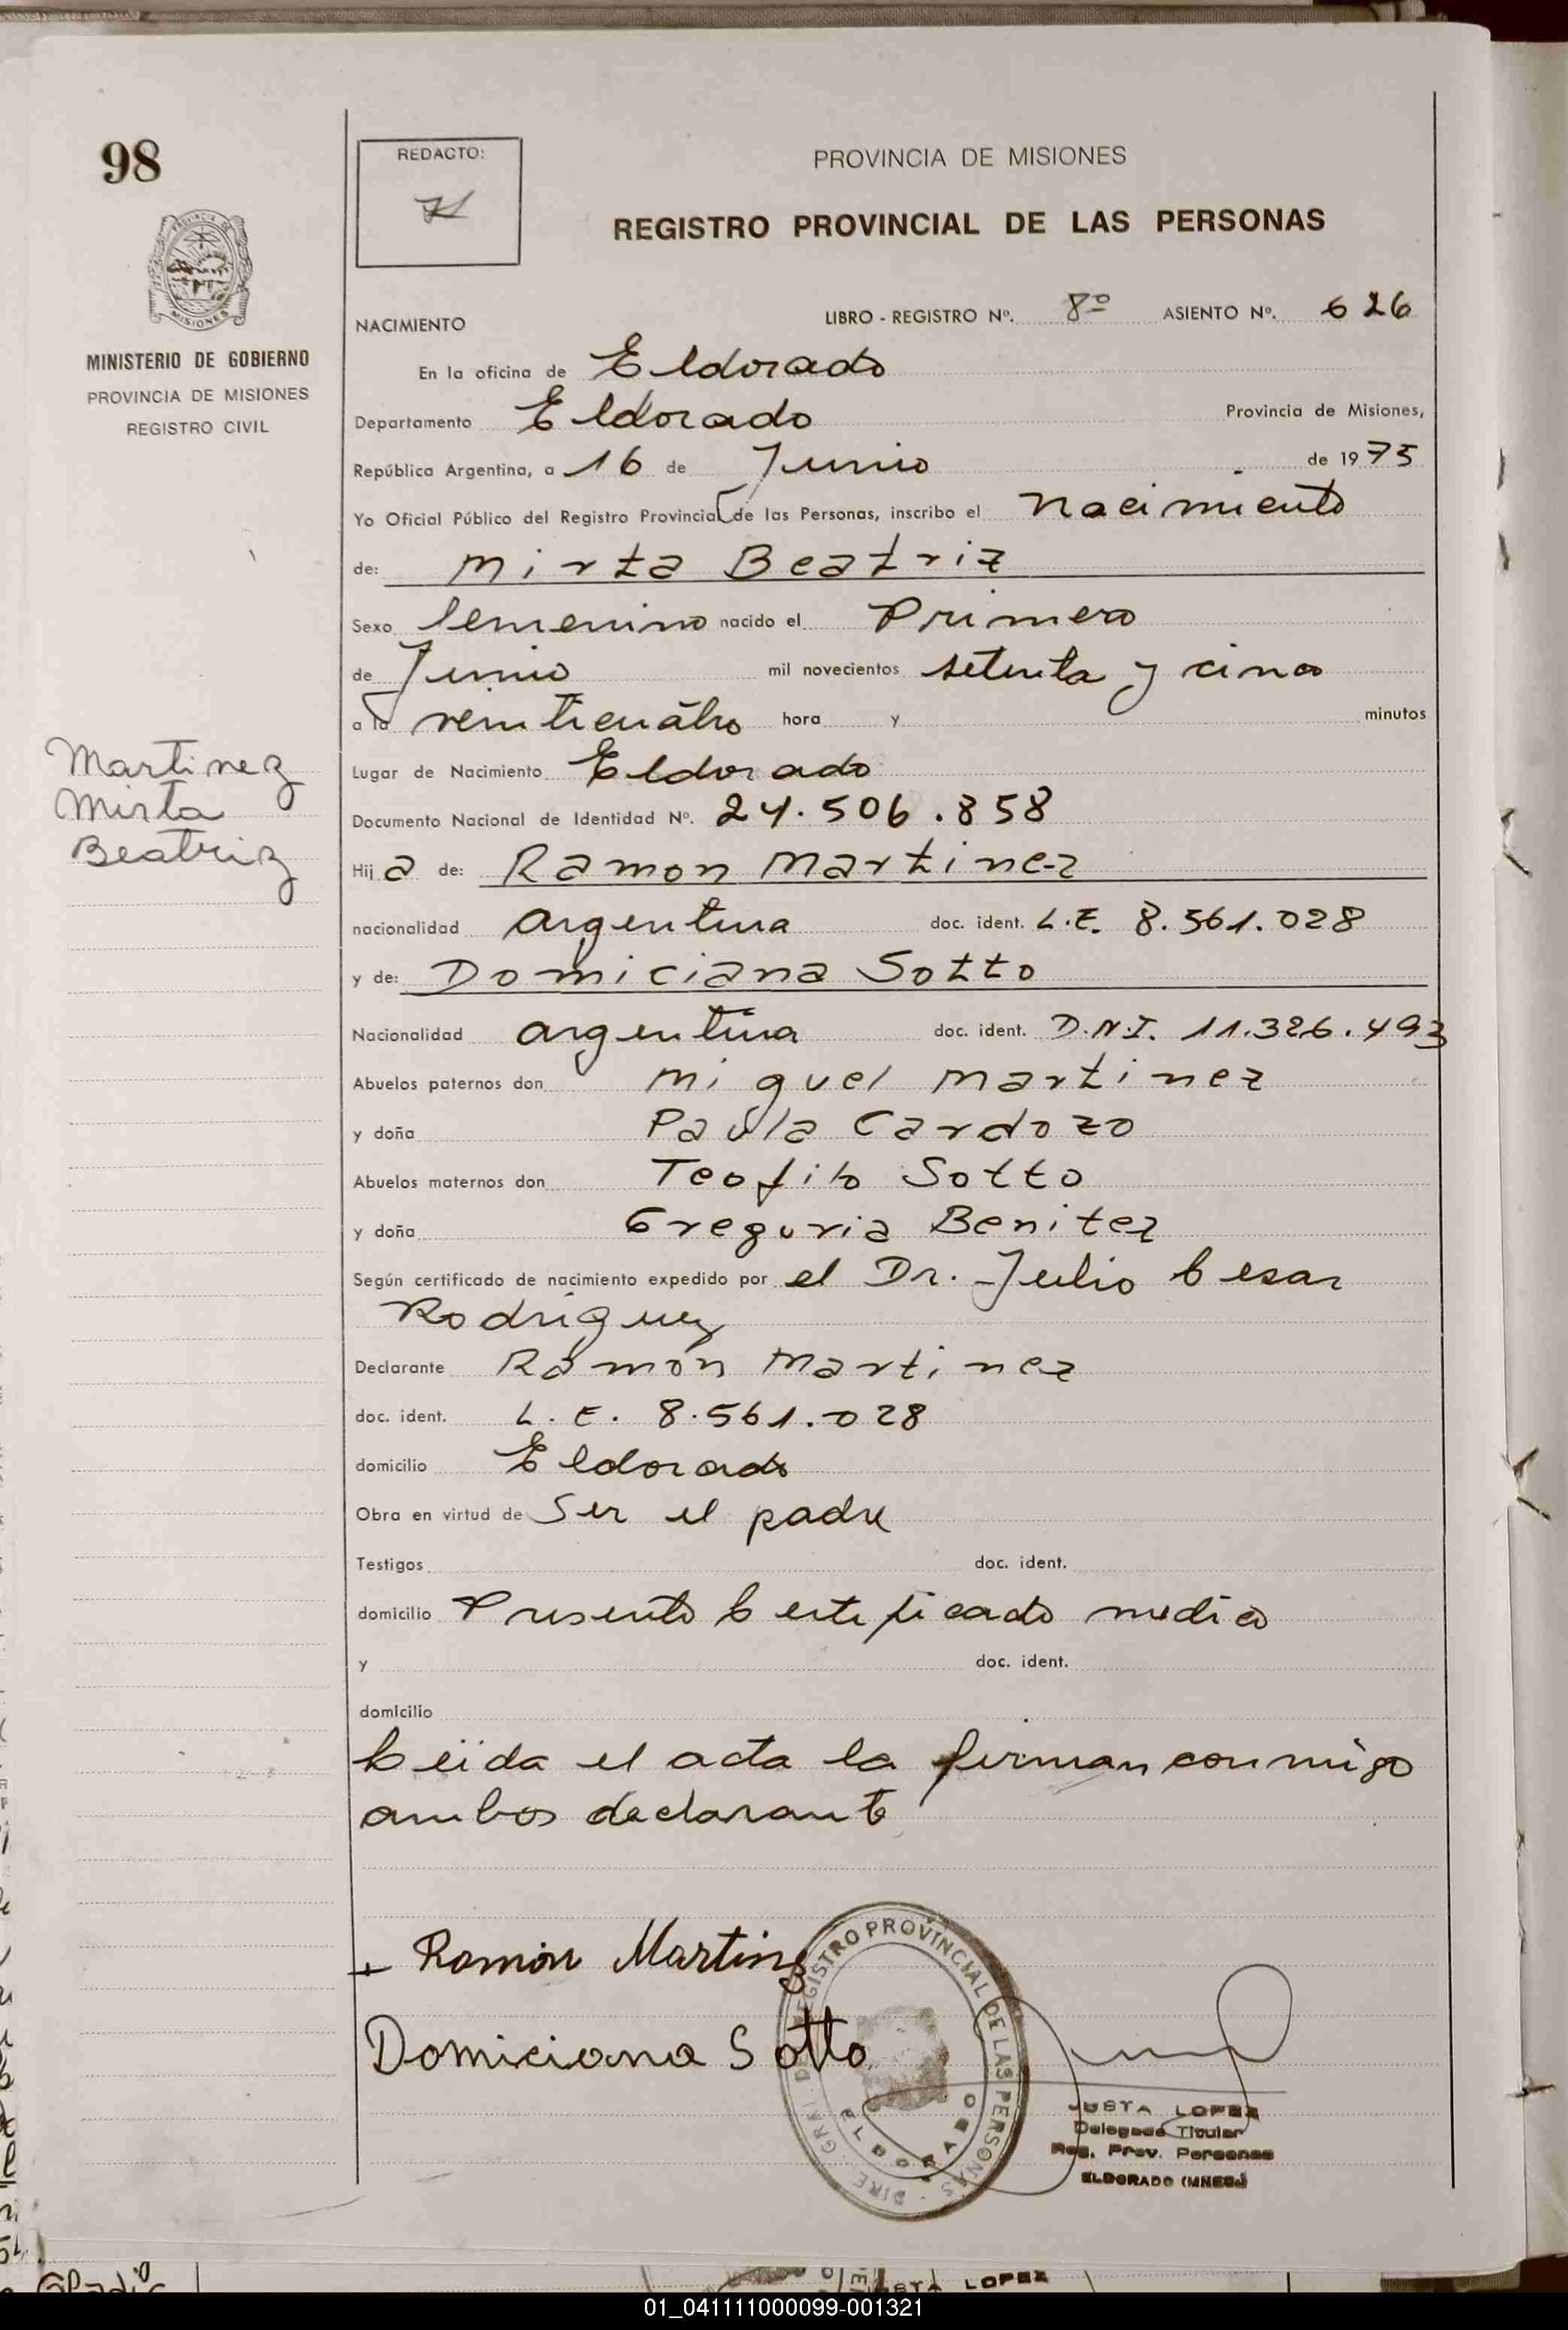 98
REDACTO:
PROVINCIA DE MISIONES
REGISTRO PROVINCIAL DE LAS PERSONAS
MINISTERIO DE GOBIERNO
PROVINCIA DE MISIONES
REGISTRO CIVIL
NACIMIENTO
LIBRO - REGISTRO Nº. 8º ASIENTO Nº. 626
En la oficina de Eldorado
Departamento Eldorado Provincia de Misiones,
República Argentina, a 16 de Junio de 1975
Yo Oficial Público del Registro Provincial de las Personas, inscribo el nacimiento
de: Mirta Beatriz
Sexo femenino nacido el Primero
de Junio mil novecientos setenta y cinco
a la veinticuatro hora y minutos
Martinez
Mirta
Beatriz
Lugar de Nacimiento Eldorado
Documento Nacional de Identidad Nº. 24.506.858
Hija de: Ramon Martinez
nacionalidad argentina doc. ident. L.E. 8.561.028
y de: Domiciana Sotto
Nacionalidad argentina doc. ident. D.N.I. 11.326.493
Abuelos paternos don Miguel Martinez
y doña Paula Cardozo
Abuelos maternos don Teofilo Sotto
y doña Greguria Benitez
Según certificado de nacimiento expedido por el Dr. Julio Cesar
Rodriguez
Declarante Ramón Martinez
doc. ident. L.E. 8.561.028
domicilio Eldorado
Obra en virtud de Ser el padre
Testigos doc. ident.
domicilio Presento Certificado medico
y doc. ident.
domicilio
Leida el acta la firman conmigo
ambos declarante
Ramon Martinez
Domiciana Sotto
REGISTRO PROVINCIAL DE LAS PERSONAS
ELDORADO
JUSTA LOPEZ
Delegada Titular
Reg. Prov. Personas
ELDORADO (MNES.)
LOPEZ
01_041111000099-001321